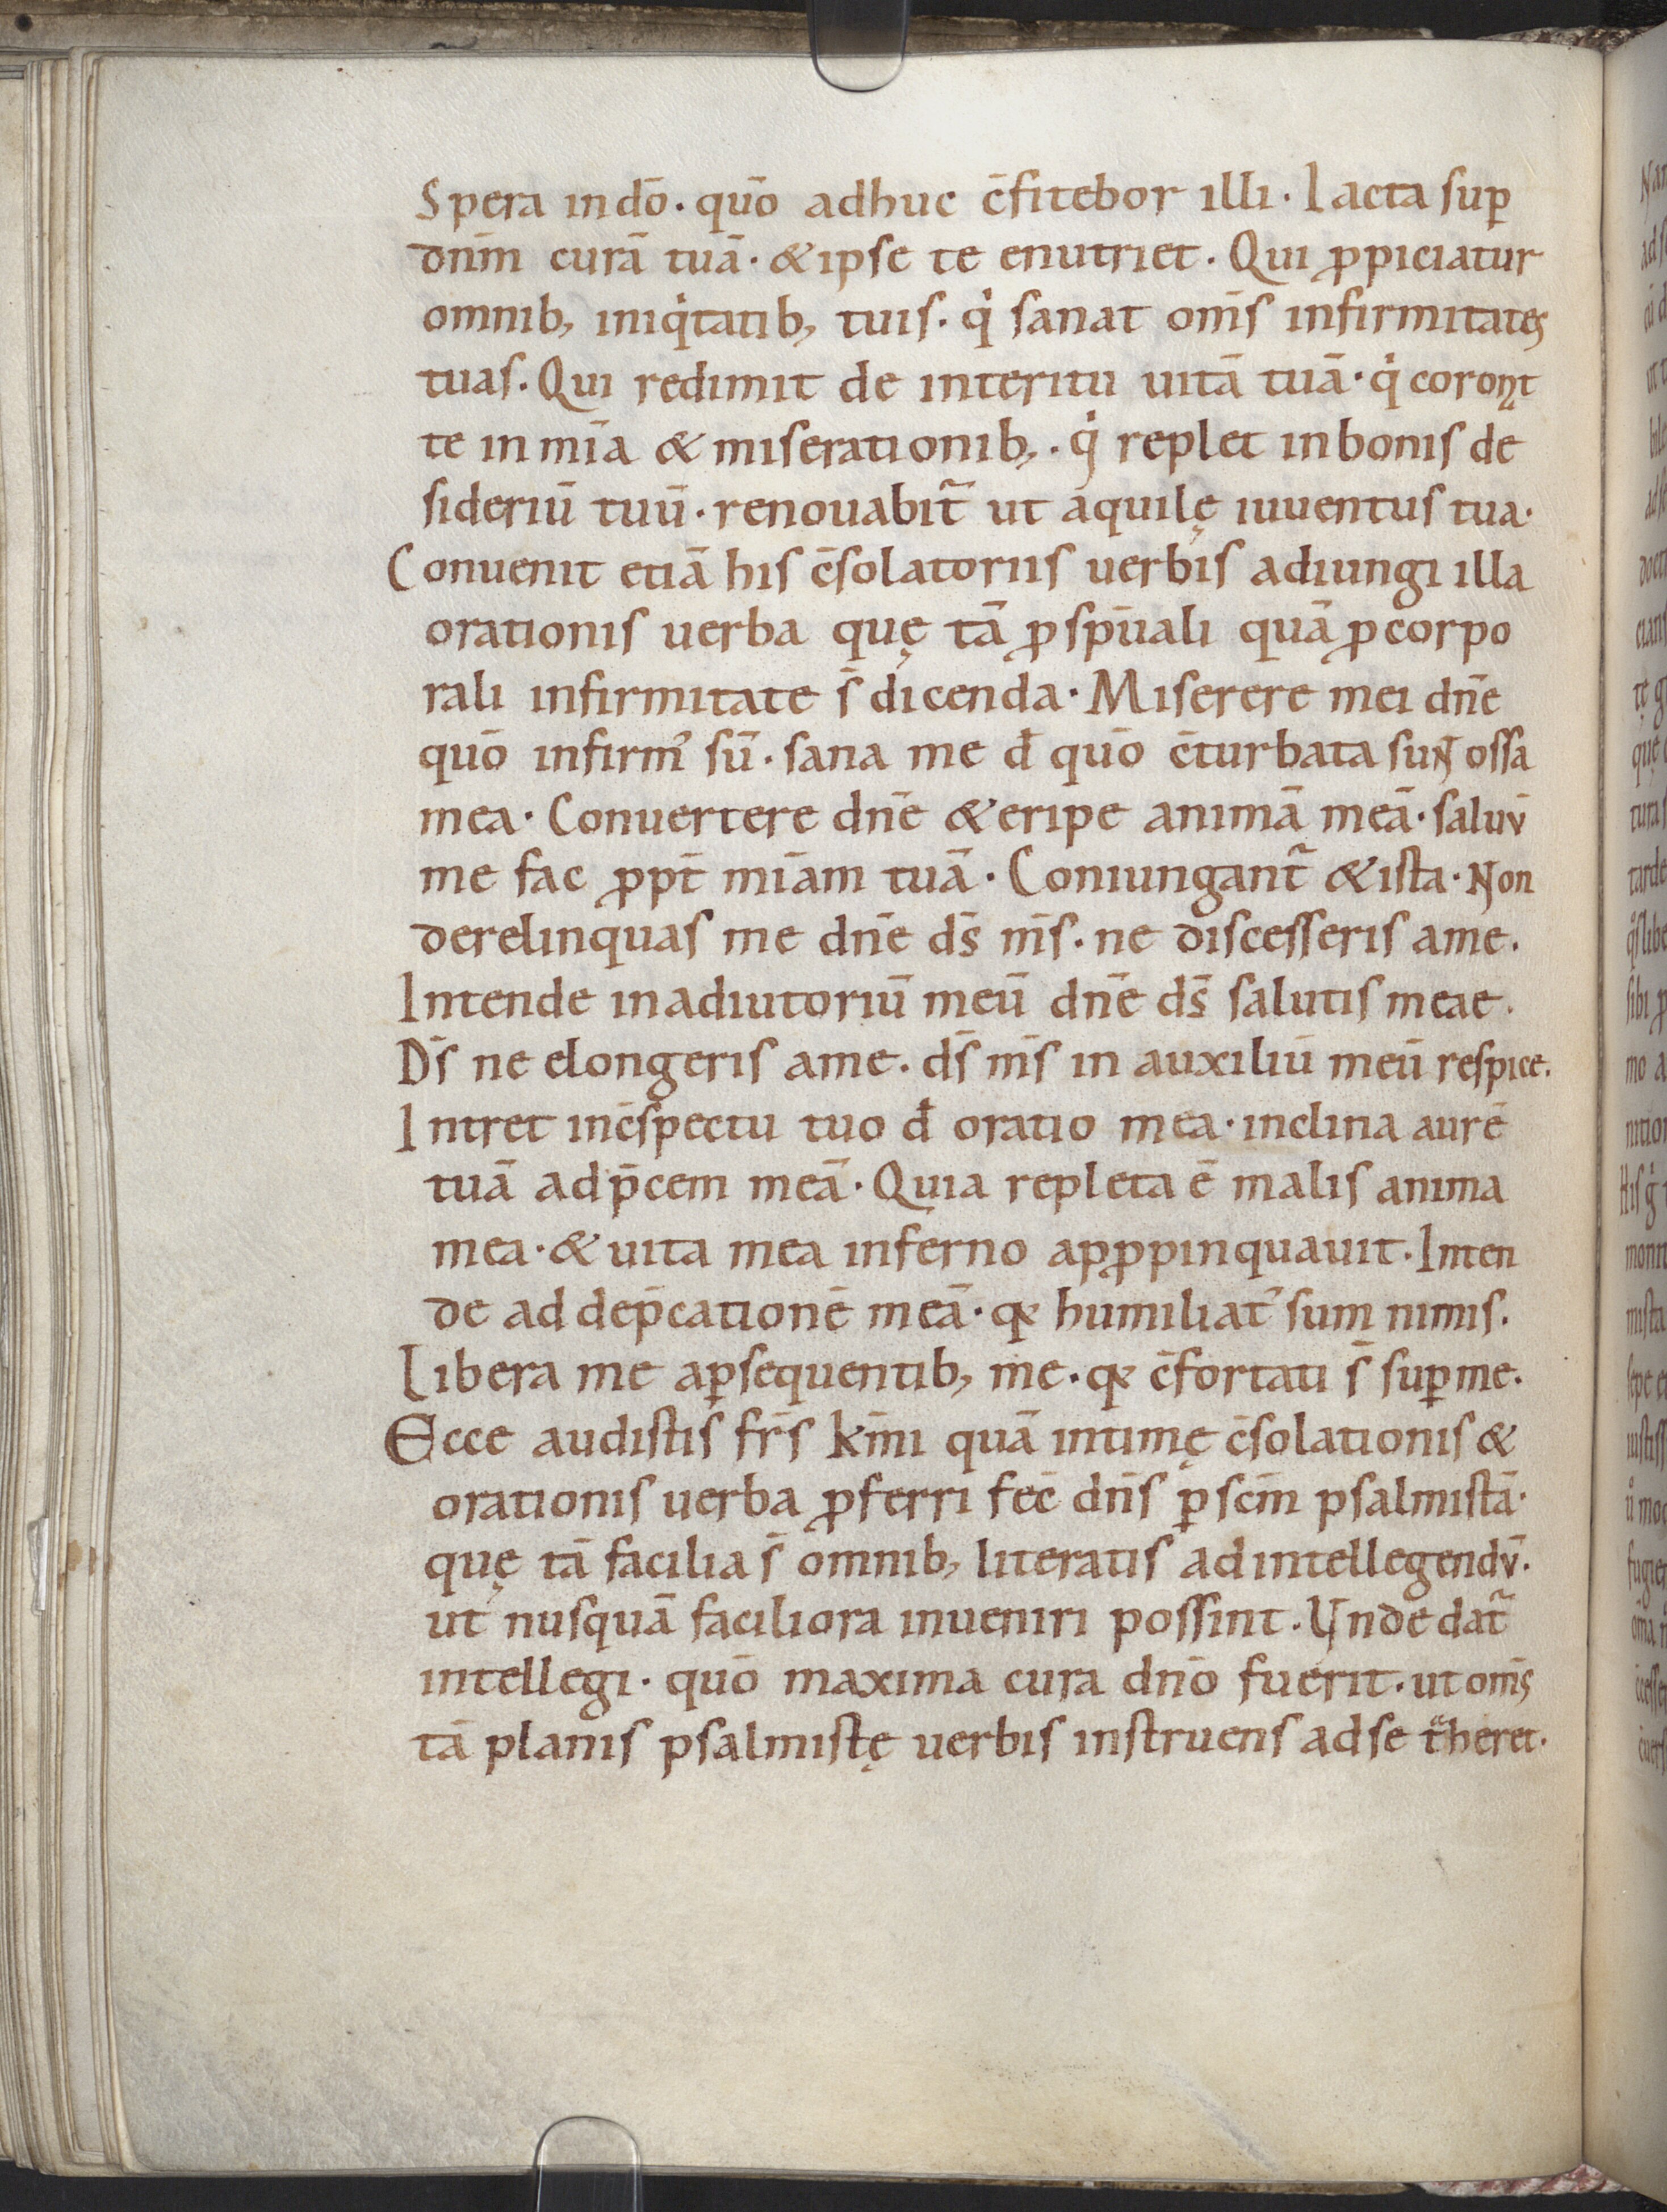 Spera in dō. quō adhuc c̄fitebor illi. Iacta suꝑ
dnm̄ curā tuā. & ipse te enutriet. Qui ꝓpiciatur
omnib; iniqͥtatib; tuis. qͥ sanat om̄s infirmitates
tuas. Qui redimit de interitu uitā tuā. qͥ coronat
te in mīa & miserationib;. qͥ replet in bonis de
sideriū tuū. renouabit᷑ ut aquilę iuuentus tua.
Conuenit etiā his c̄solatoriis uerbis adiungi illa
orationis uerba quę tā ꝓ sp̄uali quā ꝓ corpo
rali infirmitate s̄ dicenda. Miserere mei dn̄e
quō infirmꝰ sū. sana me d̄ quō c̄turbata sunt ossa
mea. Conuertere dn̄e & eripe animā meā. saluū
me fac ꝓpt̄ mīam tuā. Coniungant᷑ & ista. Non
derelinquas me dn̄e ds̄ ms̄. ne discesseris a me.
Intende in adiutoriū meū dn̄e ds̄ salutis meae.
Ds̄ ne elongeris a me. ds̄ ms̄ in auxiliū meū respice.
Intret in c̄spectu tuo d̄ oratio mea. inclina aurē
tuā ad p̄cem meā. Quia repleta ē malis anima
mea. & uita mea inferno apꝓpinquauit. Inten
de ad dep̄cationē meā. qꝛ humiliatꝰ sum nimis.
Libera me a ꝑsequentib; me. qꝛ c̄fortati s̄ suꝑ me.
Ecce audistis frs̄ km̄i quā intimę c̄solationis &
orationis uerba ꝓferri fec̄ dns̄ ꝑ scm̄ psalmistā.
quę tā facilia s̄ omnib; literatis ad intellegendū.
ut nusquā faciliora inueniri possint. Unde dat᷑
intellegi. quō maxima cura dnō fuerit. ut om̄s
tā planis psalmistę uerbis instruens ad se tͣheret.